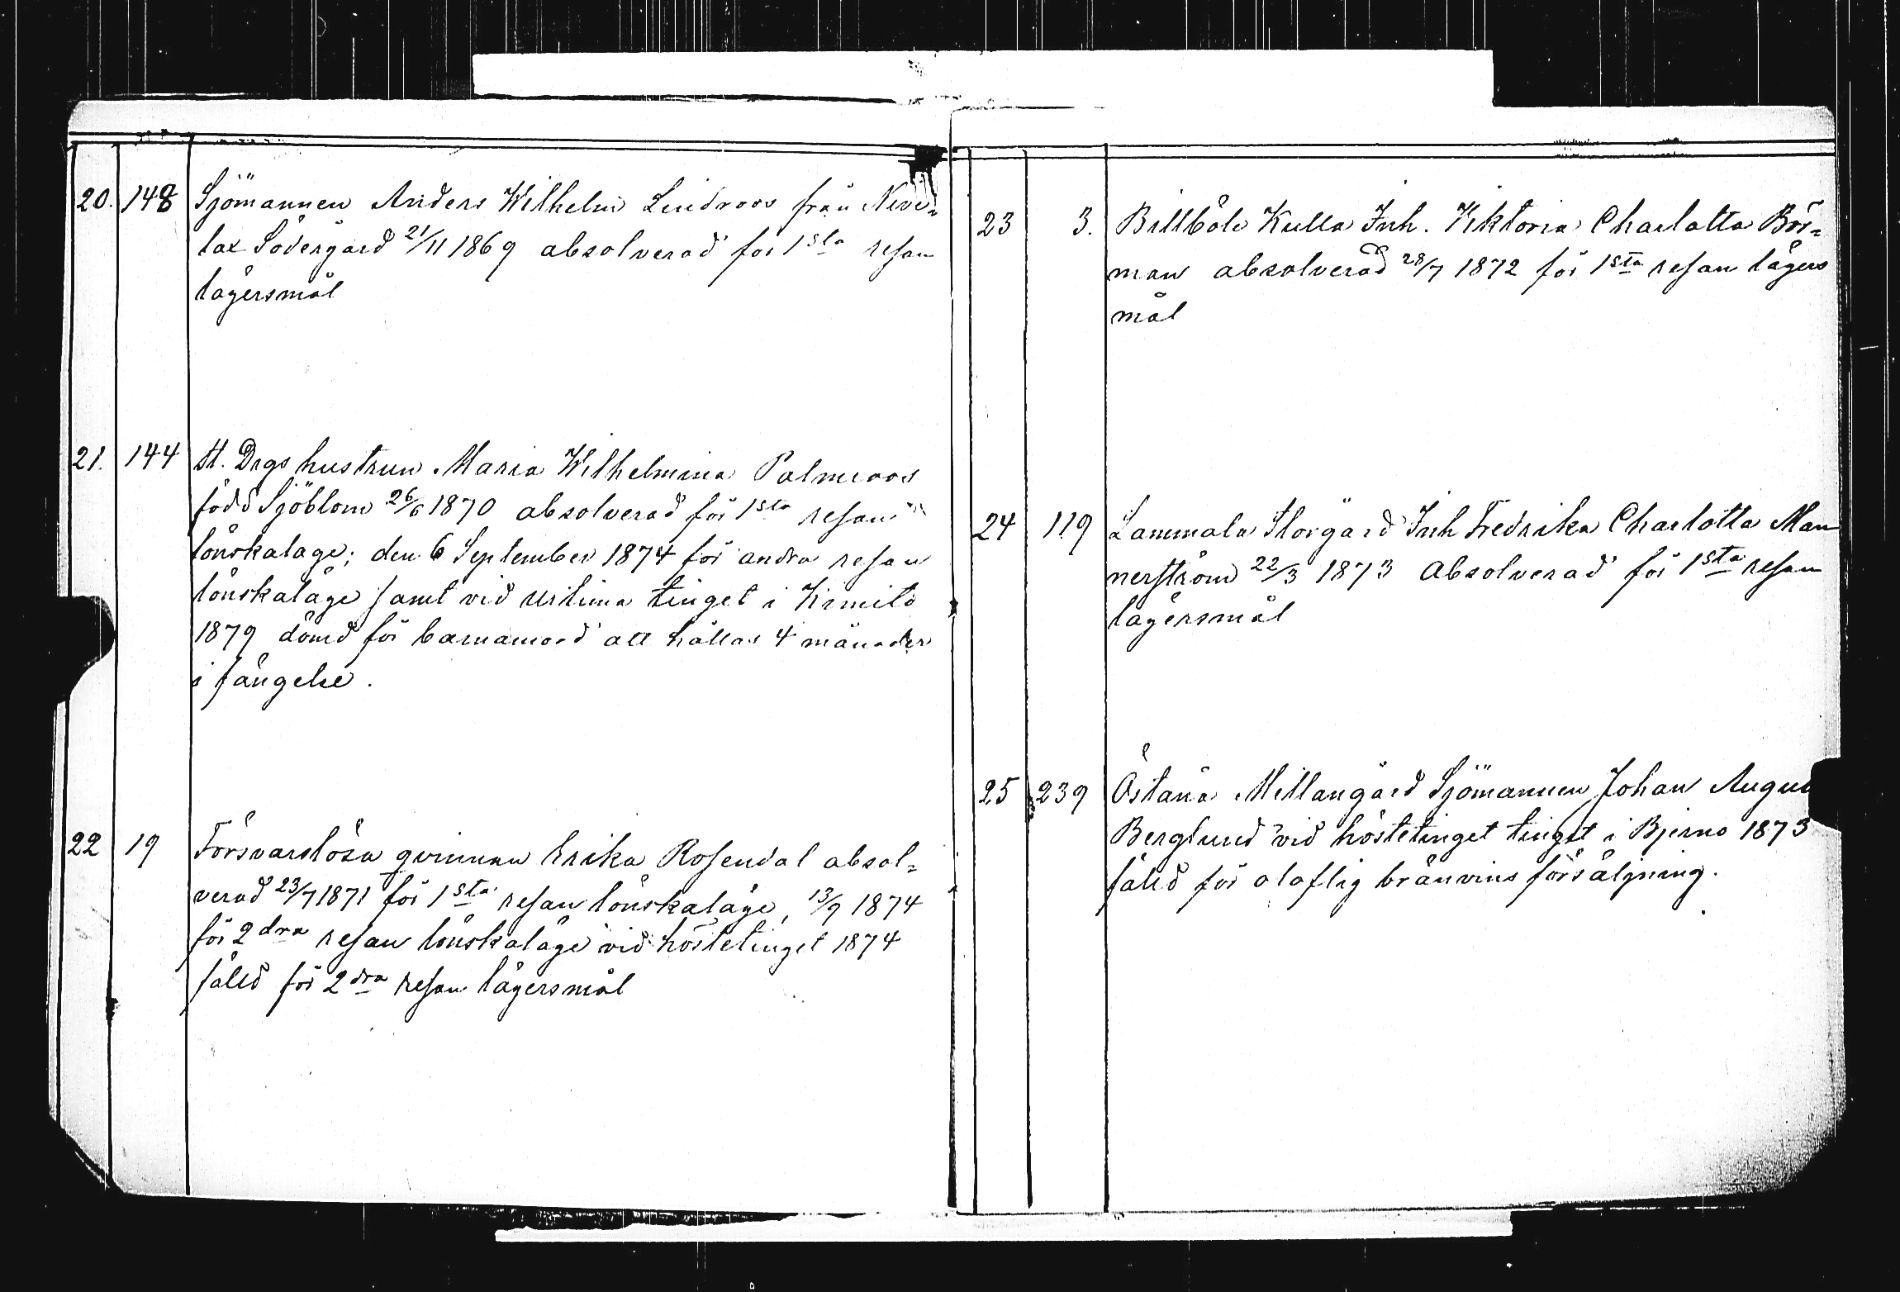 20. 148 Sjömannen Anders Wilhelm Lindroos från Nive=
lax Södergård 21/11 1869 absolverad för 1sta resan
lägersmål
21. 144 St. Drgs hustrun Maria Wilhelmina Palmroos
född Sjöblom 26/6 1870 absolverad för 1sta resan
lönskaläge; den 6 September 1874 för andra resan
lönskaläge samt vid urtima tinget i Kimito
1879 dömd för barnamord att hållas 4 månader
i fängelse.
22 19 Försvarslösa qvinnan Erika Rosendal absol=
verad 23/7 1871 för 1sta resan lönskaläge, 13/9 1874
för 2dra resan lönskaläge vid höstetinget 1874
fälld för 2dra resan lägersmål
23 3. Billböle Kulla Inh. Viktoria Charlotta Bör=
man absolverad 28/7 1872 för 1sta resan lägers
mål
24 119 Lammala Storgård Inh Fredrika Charlotta Man
nerström 22/3 1873 absolverad för 1sta resan
lägersmål
25 239 Östanå Mellangård Sjömannen Johan Augus
Berglund vid höstetinget tinget i Bjerno 1873
fälld för olaflig bränvins försäljning.